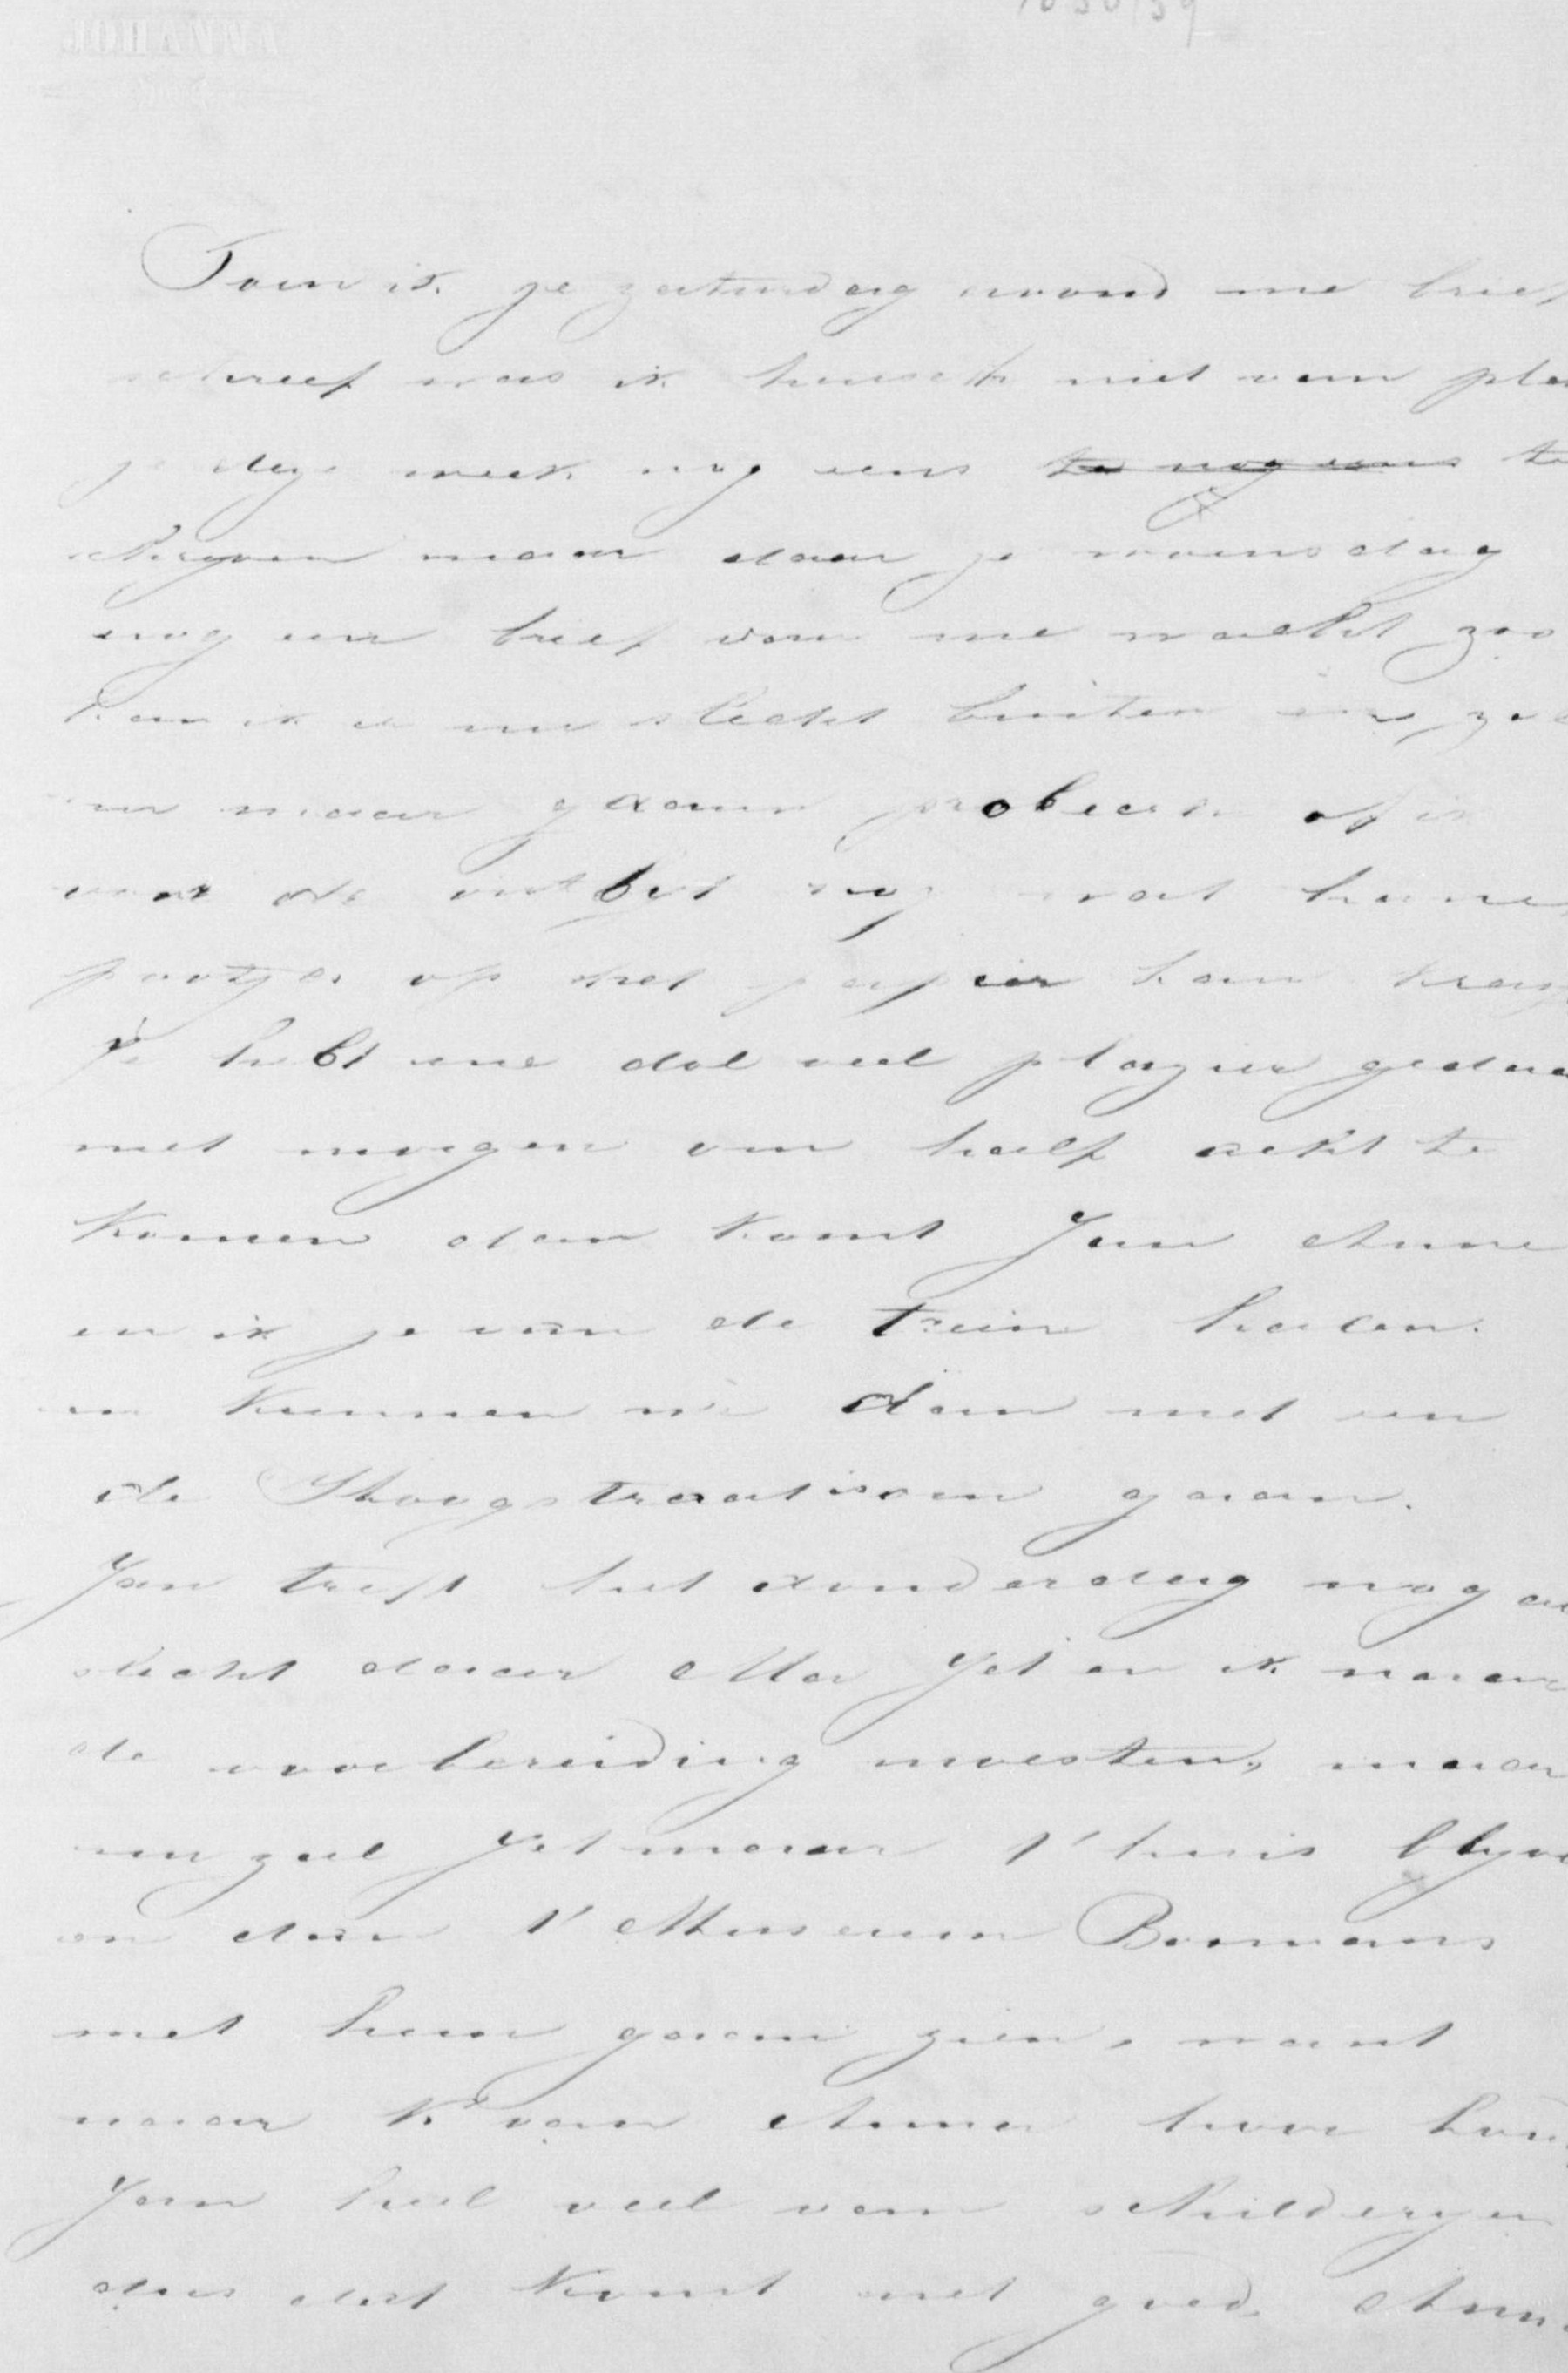 1050/59
Toen ik je zaturdag avond me brief
schreef was ik heusch niet van pla
je deze week nog eens te nog eens te
schryven maar daar je woensdag
nog een brief van me wacht zoo
kan ik er nu slecht buiten en zal
nu maar gaan probeeren of ik
voor de ontbyt nog wat hane
pootjes op het papier kan kryg
Je hebt me dol veel plezier gedaa
met morgen om half acht te
komen dan komt Jan Anna
en ik je van de trein halen.
en kunnen we dan met een
de Hoogstraat in gaan.
Jan treft het donderdag nog al
slecht daar Ma Jet en ik naar
de voorbereiding moesten, maar
nu zal Jet maar t' huis blyve
en dan t' Museum Boymans
met hun gaan zien, want
naar k van Anna hoor hou
Jan heel veel van schilderyen
dus dat komt net goed. Anna